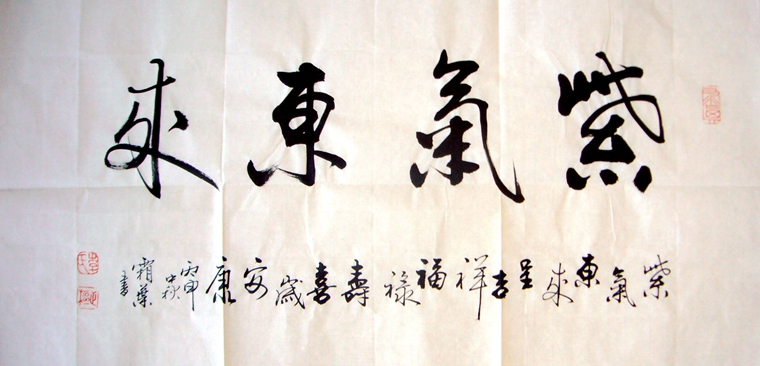 紫氣東來
紫氣東來呈吉祥福祿壽喜歲安康丙申中秋霜葉書